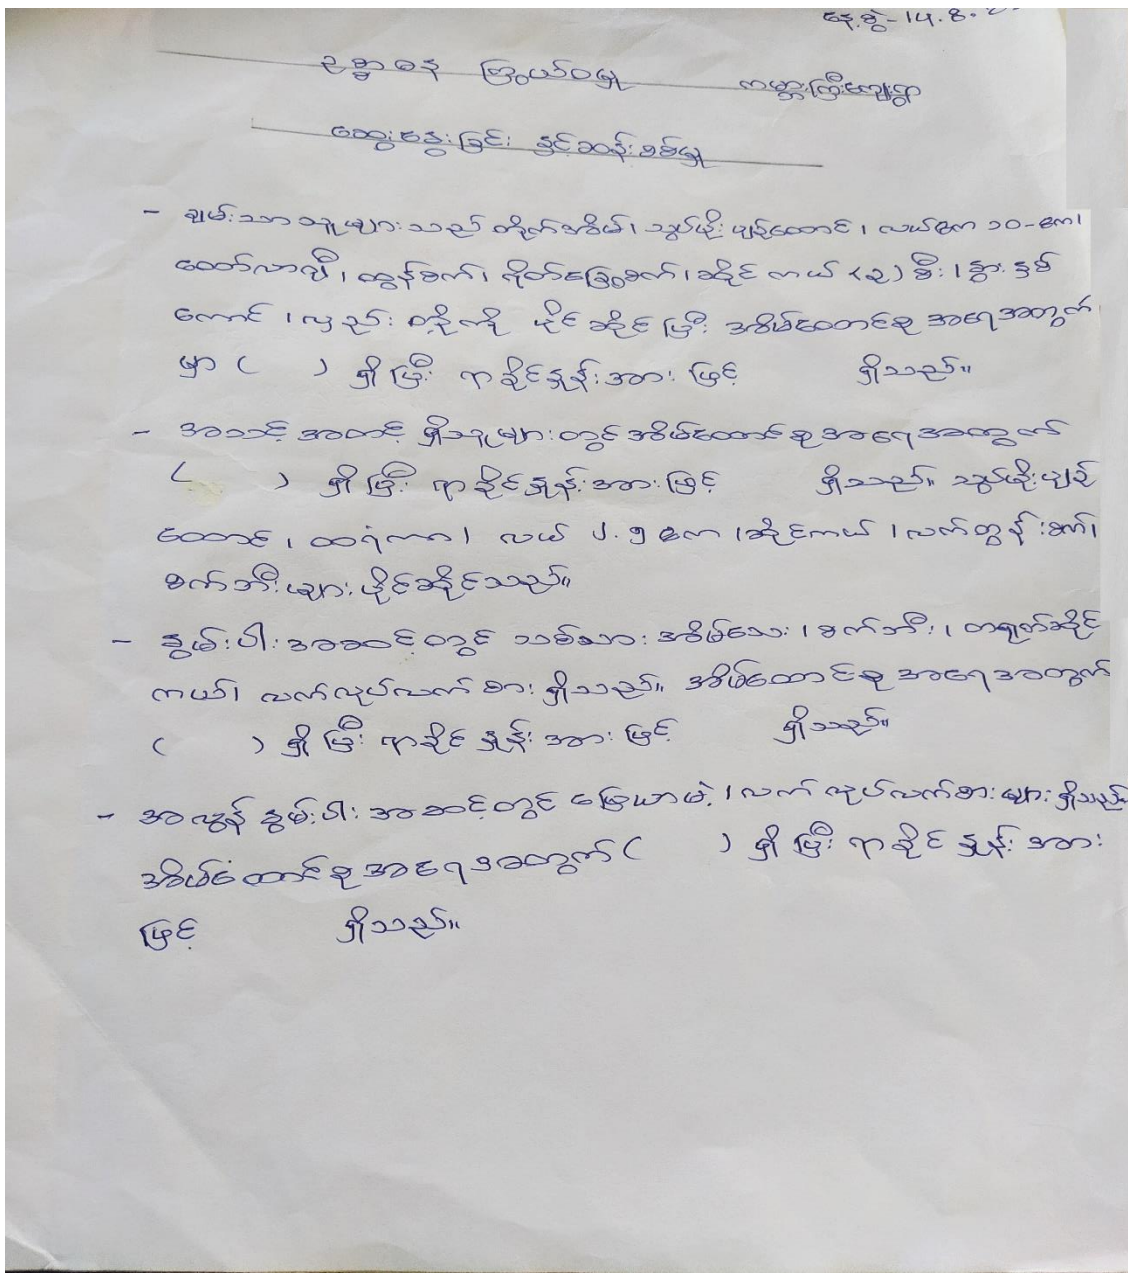 နေ့စွဲ-14.8.
ဥစ္စာဓန ကြွယ်ဝမှု ကမ္ဘားကြီးကျေးရွာ
ဆွေးနွေးခြင်း နှင့်ဆန်းစစ်မှု
- ချမ်းသာသူများသည် တိုက်အိမ်၊ သွပ်မိုး ပျဉ်ထောင်၊ လယ်ဧက ၁၀-ဧက၊
ထော်လာဂျီ၊ ထွန်စက်၊ ရိုတ်ခြွေစက်၊ ဆိုင်ကယ် (၃)စီး၊ နွား နှစ်
ကောင်၊ လှည်း တို့ကို ပိုင်ဆိုင်ပြီး အိမ်ထောင်စု အရေအတွက်
မှာ ( ) ရှိပြီး ရာခိုင်နှုန်းအားဖြင့် ရှိသည်။
- အသင့်အတင့် ရှိသူများတွင် အိမ်ထောင်စုအရေအတွက်
( ) ရှိပြီး ရာခိုင်နှုန်းအားဖြင့် ရှိသည်။ သွပ်မိုးပျဉ်
ထောင်၊ ထရံကာ၊ လယ် ၂.၅ ဧက၊ ဆိုင်ကယ်၊ လက်တွန်းစက်၊
စက်ဘီးများ ပိုင်ဆိုင်သည်။
- နွမ်းပါးအဆင့်တွင် သစ်သားအိမ်သေး၊ စက်ဘီး၊ တရုတ်ဆိုင်
ကယ်၊ လက်လုပ်လက်စား ရှိသည်။ အိမ်ထောင်စုအရေအတွက်
( ) ရှိပြီး ရာခိုင်နှုန်းအားဖြင့် ရှိသည်။
- အလွန်နွမ်းပါးအဆင့်တွင် မြေယာမဲ့၊ လက်လုပ်လက်စားများ ရှိသည်
အိမ်ထောင်စုအရေအတွက် ( ) ရှိပြီး ရာခိုင်နှုန်းအား
ဖြင့် ရှိသည်။